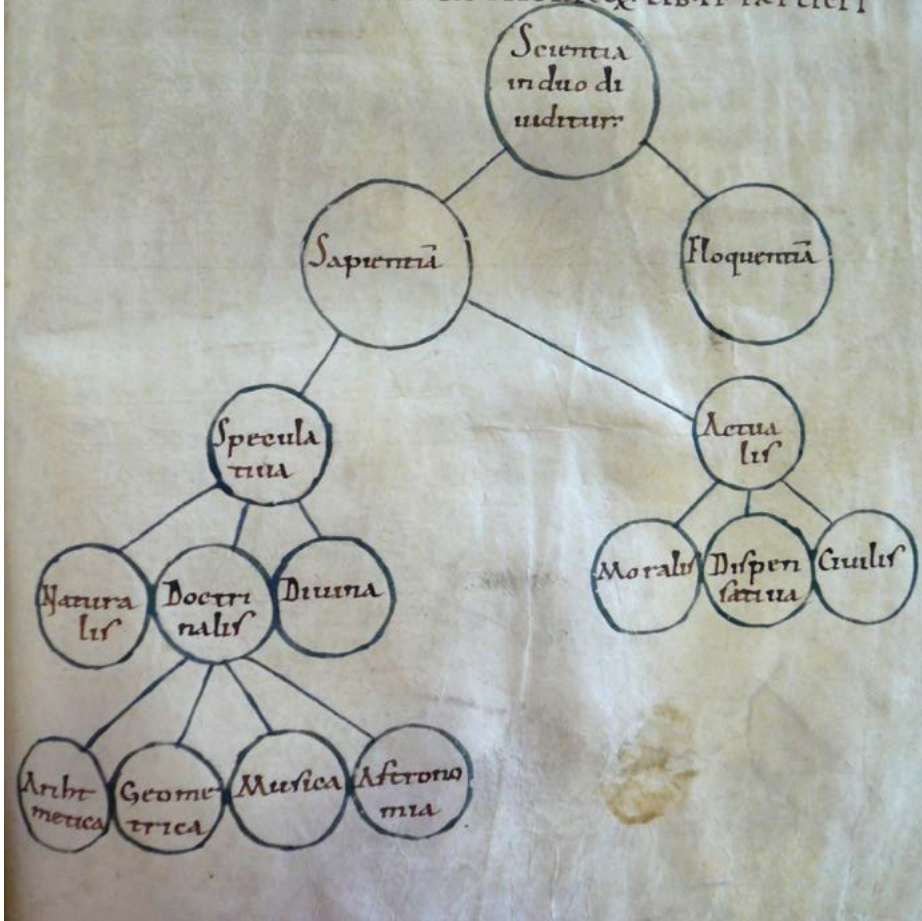 Scientia
in duo di
uiditur
Sapientia
Eloquentia
Specula
tiua
Actua
lis
Natura
lis
Doctri
nalis
Diuina
Moralis
Dispen
satiua
Ciuilis
Ariht
metica
Geome
trica
Musica
Astrono
mia